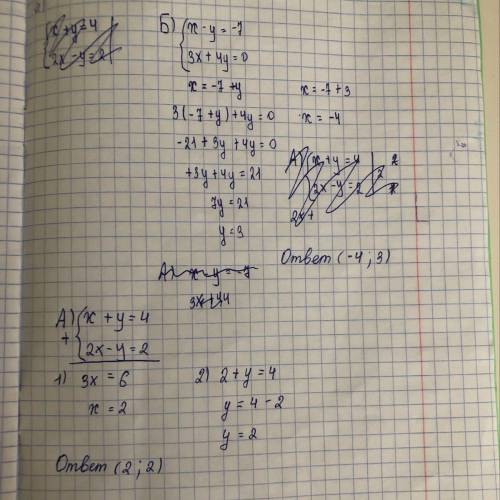 x+y=4
2x-y=2
Б) x-y=-7
3x+4y=0
x=-7+y
3(-7+y)+4y=0
-21+3y+4y=0
+3y+4y=21
7y=21
y=3
x=-7+3
x=-4
А) x+y=4
2x-y=2
2x+
Ответ (-4;3)
А) x-y=-7
3x+4y
А) x+y=4
+
2x-y=2
1) 3x=6
x=2
2) 2+y=4
y=4-2
y=2
Ответ (2;2)